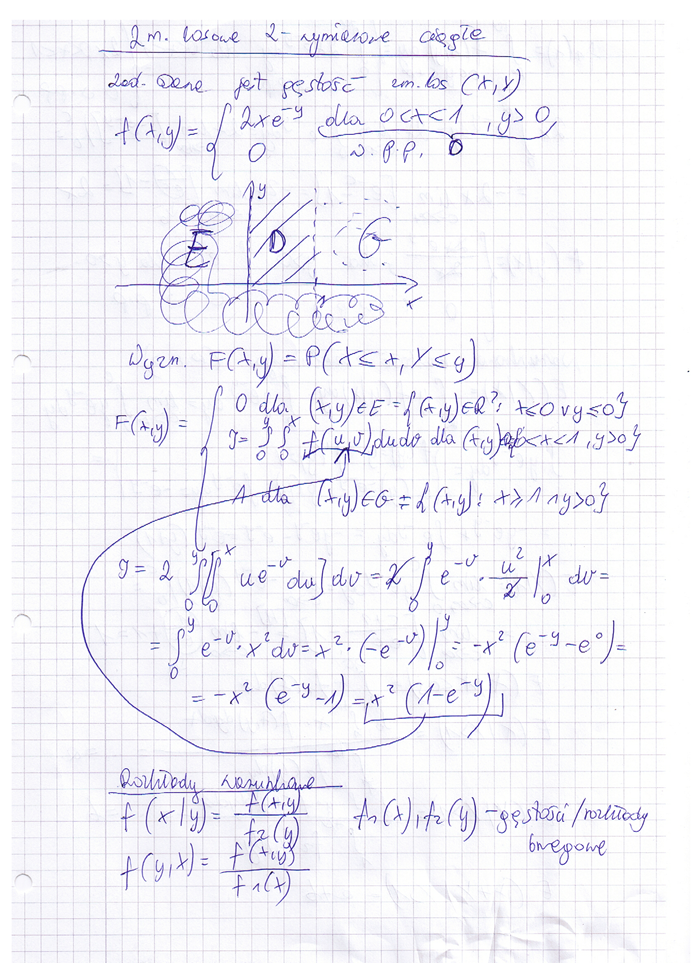 Zm. losowe 2-wymiarowe ciągłe
Zad. Dana jest gęstość zm. los (X,Y)
f(x,y) = { 2xe^{-y} dla 0<x<1, y>0
0 w.p.p. D
y
E D G
1 x
Wyzn. F(x,y) = P(X≤x, Y≤y)
F(x,y) = { 0 dla (x,y)∈E = {(x,y)∈R²: x≤0 ∨ y≤0}
J = ∫_0^y ∫_0^x f(u,v) du dv dla (x,y) 0<x<1, y>0}
1 dla (x,y)∈G = {(x,y): x≥1 ∧ y>0}
J = 2 ∫_0^y [∫_0^x ue^{-v} du] dv = 2 ∫_0^y e^{-v} · u²/2 |_0^x dv =
= ∫_0^y e^{-v} · x² dv = x² · (-e^{-v}) |_0^y = -x² (e^{-y} - e^0) =
= -x² (e^{-y} - 1) = x² (1 - e^{-y})
Rozkłady warunkowe
f(x|y) = f(x,y) / f2(y) f1(x), f2(y) - gęstości/rozkłady
brzegowe
f(y,x) = f(x,y) / f1(x)